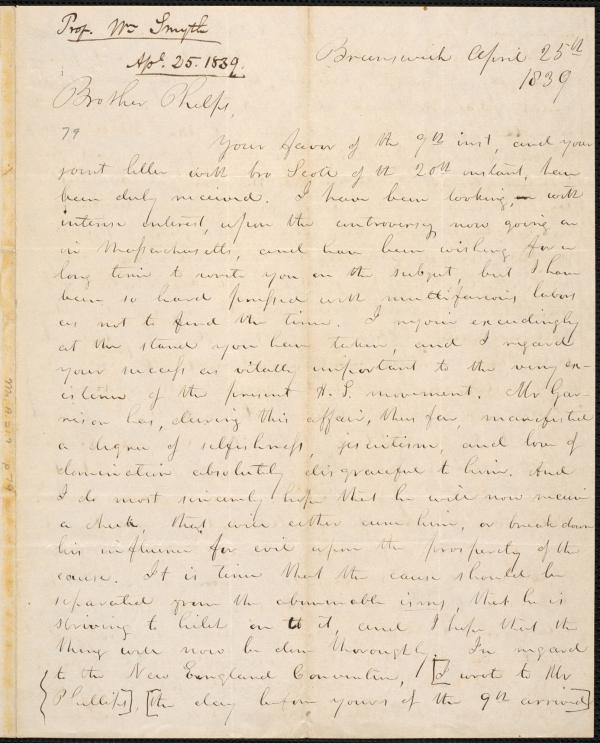 Prof. Wm Smyth
Apl. 25. 1839.
Brunswick April 25th
1839
Brother Phelps,
79
Your favor of the 9th inst, and your
joint letter with bro Scott of th 20th instant, have
been duly received. I have been looking, with
intense interest, upon the controversy now going on
in Massachusetts, and have been wishing for a
long time to write you on the subject, but I have
been so hard pressed with multifarious labors
as not to find the time. I rejoice exceedingly
at the stand you have taken, and I regard
your success as vitally important to the very ex-
istence of the present A. S. movement. Mr Gar-
rison has, during this affair, thus far, manifested
a degree of selfishness, jesuitism, and love of
domination absolutely disgraceful to him. And
I do most sincerely hope that he will now receive
a check, that will either cure him, or break down
his influence for evil upon the prosperity of the
cause. It is time that the cause should be
separated from the abominable isms, that he is
striving to hitch on to it, and I hope that the
thing will now be done thoroughly. In regard
to the New England Convention, [I wrote to Mr
Phillips], [the day before yours of the 9th arrived]